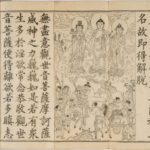 名故即得解脫
無盡意觀世音菩薩摩訶薩
威神之力巍巍如是若有衆
生多於婬欲常念恭敬觀世
音菩薩便得離欲若多瞋恚